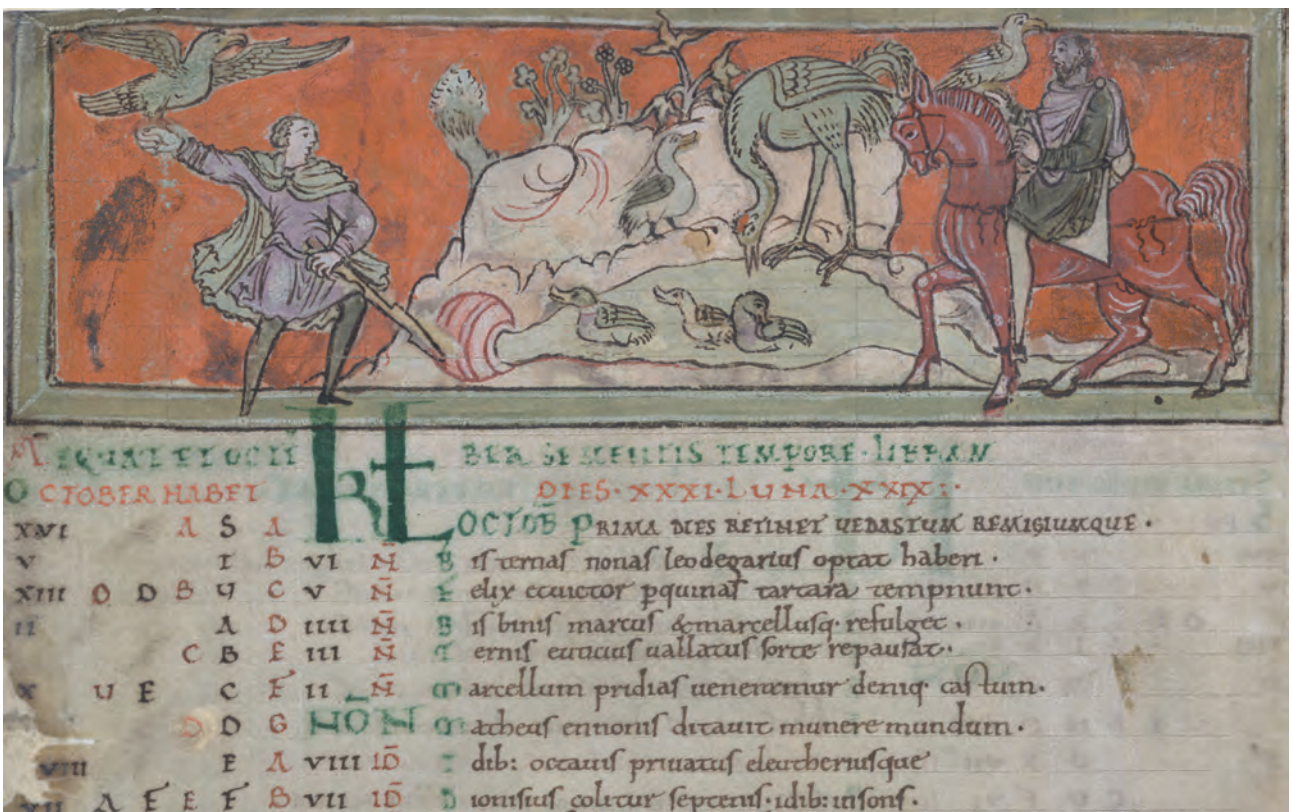 AEQUAT ET OCTI KL BER SEMENTIS TEMPORE · LIBRAM
OCTOBER HABET DIES · XXXI · LUNA · XXIX ·
XVI A S A OCTOB̄ PRIMA DIES RETINET UEDASTUM REMIGIUMQUE ·
V T B VI N̄ Bis ternas nonas leodegarius optat haberi ·
XIII O D B U C V N̄ Felix & uictor pquinas tartara tempnunt ·
II A D IIII N̄ Bis binis marcus & marcellusq· refulget ·
C B E III N̄ Ternis euticius uallatus sorte repausat ·
X U E C F II N̄ Marcellum pridias ueneremur deniq· castum ·
D D G NŌN Matheus ennonis ditauit munere mundum ·
XVIII E A VIII ID̄ Idib: octauis priuatus eleutheriusque
VII A F E F B VII ID̄ Dionisius colitur septenis · idib: insons ·